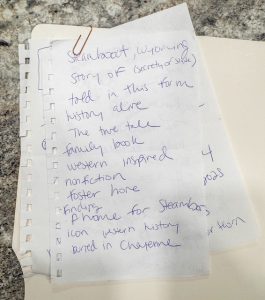 Steamboat, Wyoming
Story of (secretary of state)
told in this form
history alive
The true tale
family book
western inspired
nonfiction
foster home
finding
A home for Steamboat,
icon western history
buried in Cheyenne
4